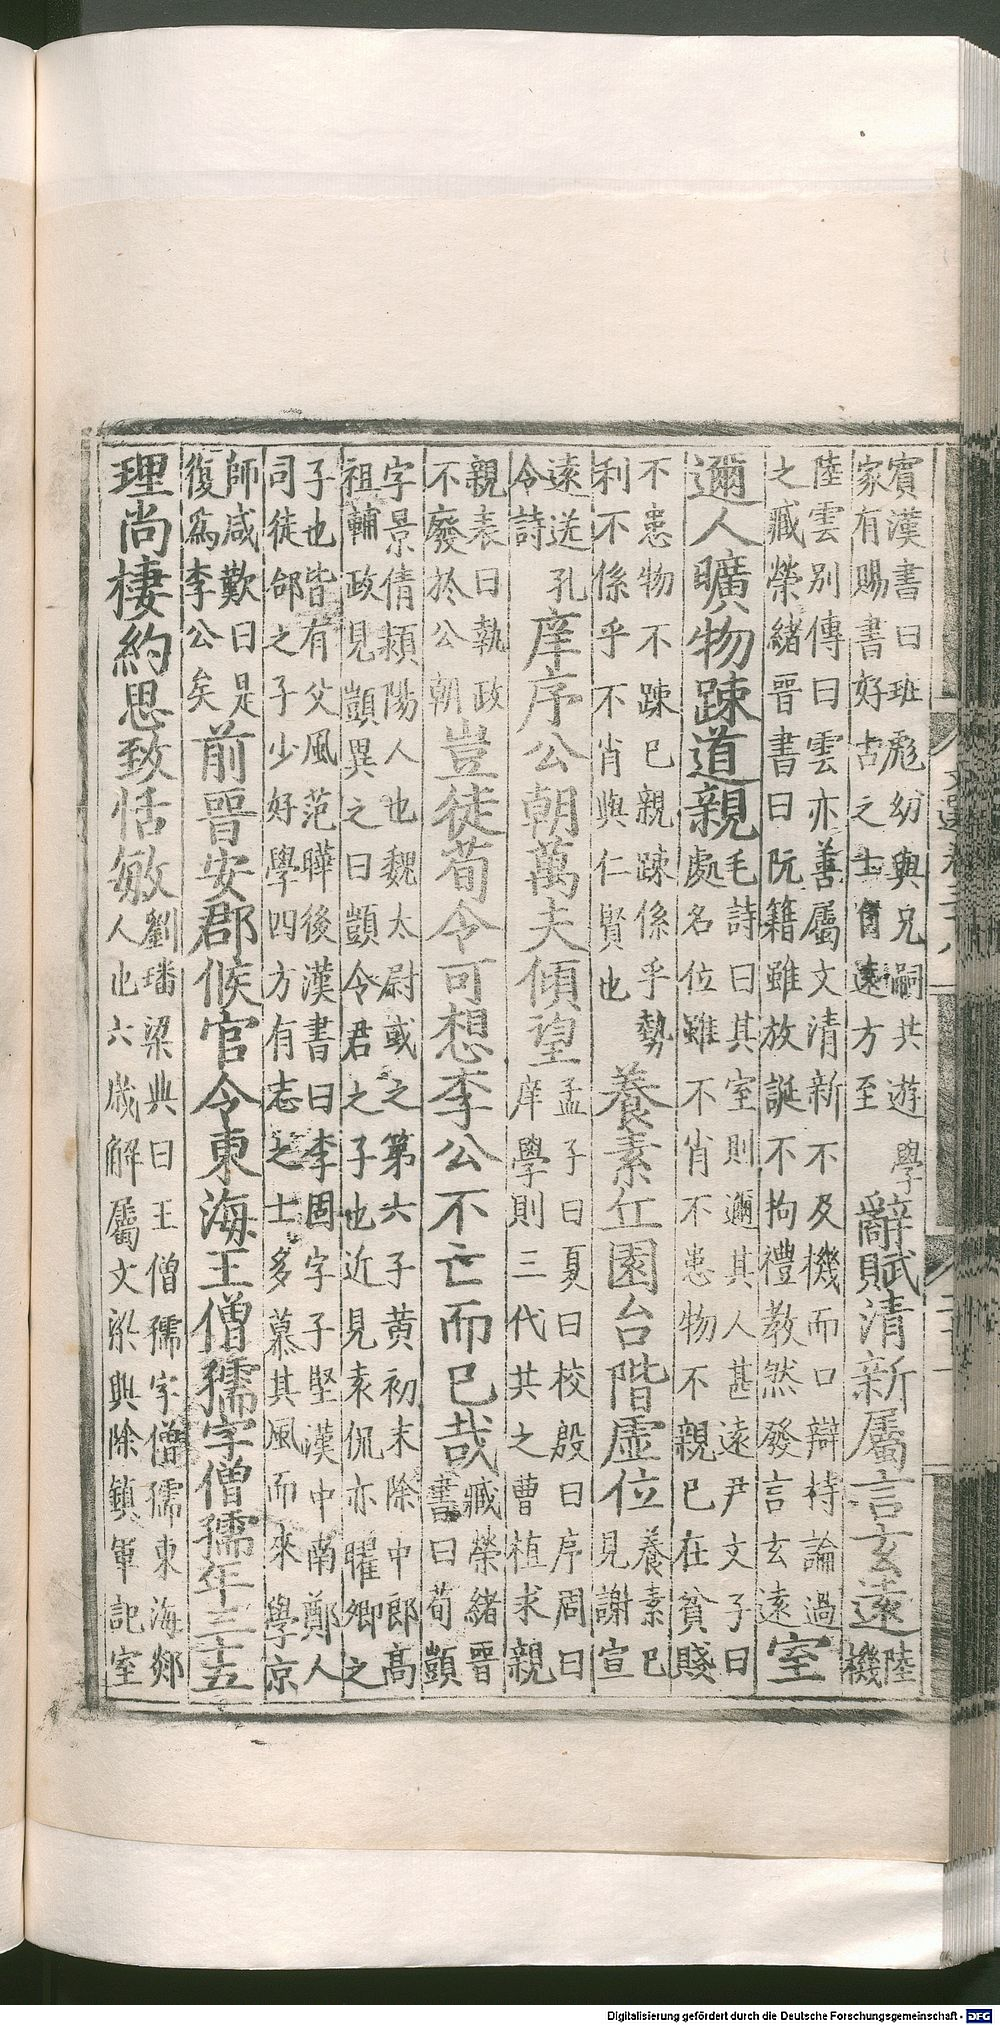 賓漢書曰班彪幼與兄嗣共遊學
家有賜書好古之士自遠方至
辭賦清新屬言玄遠
陸
機
陸雲別傳曰雲亦善屬文清新不及機而口辯持論過
之臧榮緒晉書曰阮籍雖放誕不拘禮教然發言玄遠
室
邇人曠物踈道親
毛詩曰其室則邇其人甚遠尹文子曰
處名位雖不肖不患物不親已在貧賤
不患物不踈已親踈係乎勢
利不係乎不肖與仁賢也
養素丘園台階虛位
養素已
見謝宣
遠送孔
令詩
庠序公朝萬夫傾望
孟子曰夏曰校殷曰序周曰
庠學則三代共之曹植求親
親表曰執政
不廢於公朝
豈徒荀令可想李公不亡而已哉
臧榮緒晉
書曰荀顗
字景倩潁陽人也魏太尉或之第六子黃初末除中郎高
祖輔政見顗異之曰顗令君之子也近見袁侃亦曜卿之
子也皆有父風范曄後漢書曰李固字子堅漢中南鄭人
司徒郃之子少好學四方有志之士多慕其風而來學京
師咸歎曰是
復爲李公矣
前晉安郡候官令東海王僧孺字僧孺年三十五
理尚棲約思致恬敏
劉璠梁典曰王僧孺字僧孺東海郯
人也六歲解屬文梁興除鎮軍記室
Digitalisierung gefördert durch die Deutsche Forschungsgemeinschaft - DFG